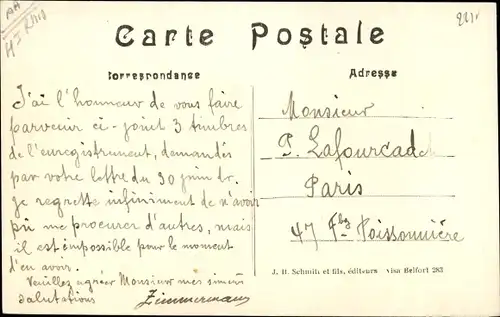 Ht Rhin
221
Carte Postale
Correspondance
Adresse
J'ai l'honneur de vous faire
parvenir ci-joint 3 timbres
de l'enregistrement, demandés
par votre lettre du 30 juin dr,
je regrette infiniment de n'avoir
pu me procurer d'autres, mais
il est impossible pour le moment
d'en avoir.
Veuillez agréer Monsieur mes sincères
salutations
Zimmermann
Monsieur
P. Lafourcade
Paris
47 Fbg Poissonnière
J. B. Schmitt et fils, éditeurs visa Belfort 283